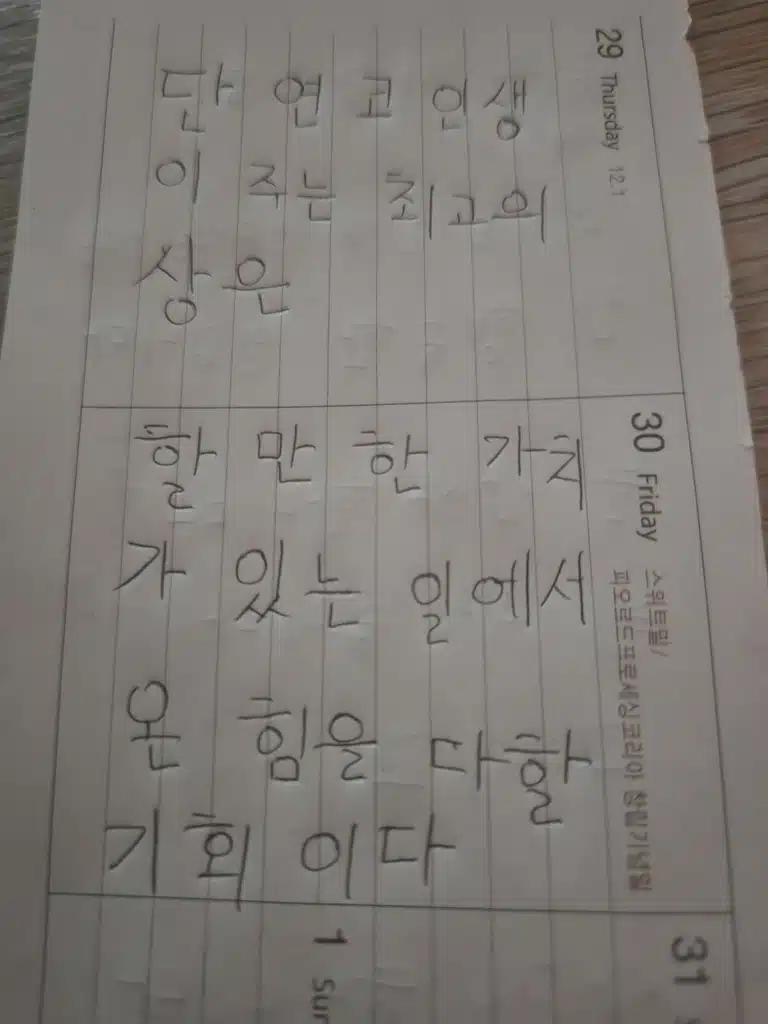 29 Thursday
단 연 코 인생
이 주는 최고의
상은
30 Friday 스위트밀/
피오르드프로세싱코리아 창립기념일
할 만 한 가치
가 있는 일에서
온 힘을 다할
기회 이다
31
1 Sun